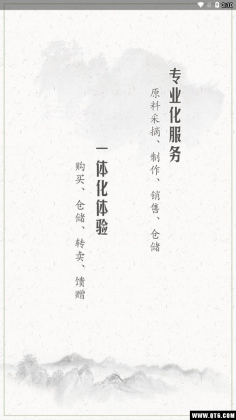 专业化服务
原料采摘、制作、销售、仓储
一体化体验
购买、仓储、转卖、馈赠
WWW.QT6.COM